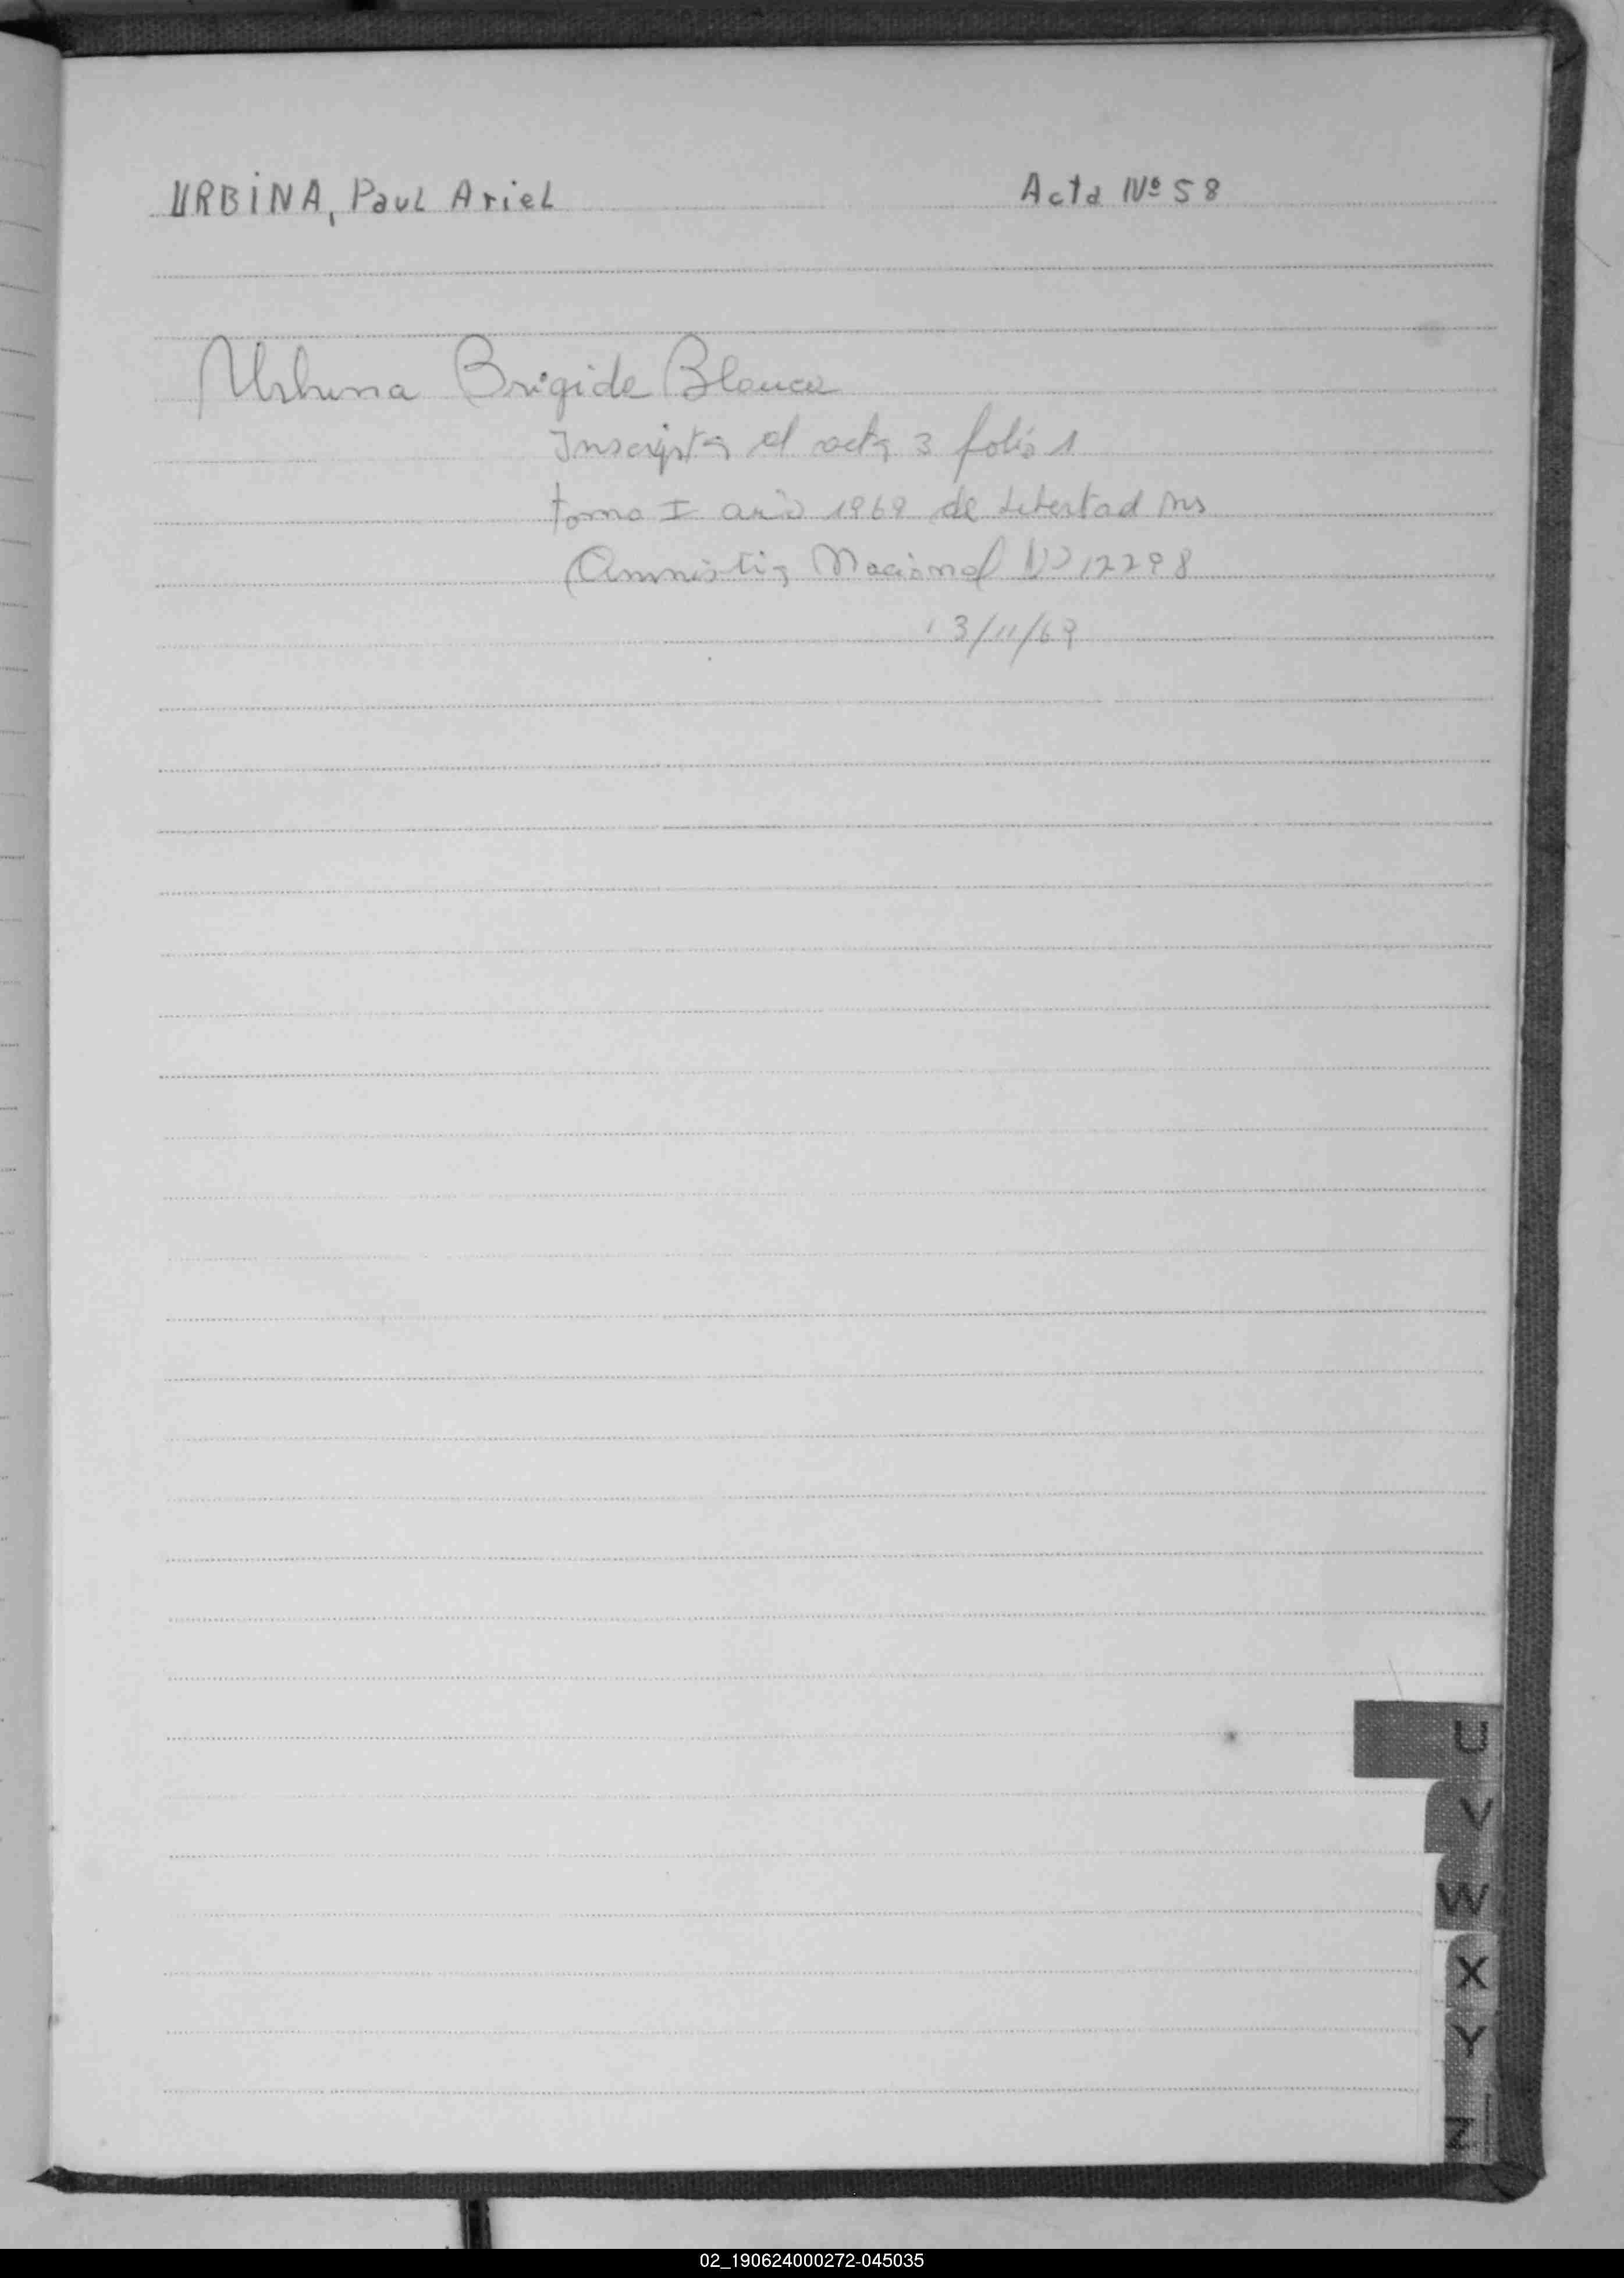 URBINA, Paul Ariel Acta Nº 58
Urbina Brigida Blanca
Inscripta al acta 3 folio 1
tomo I año 1969 de Libertad Ms
Amnistia Nacional Nº 17298
3/11/69
U
V
W
X
Y
Z
02_190624000272-045035